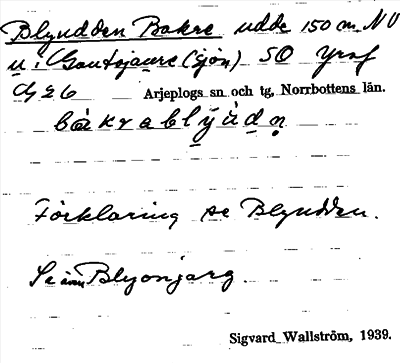 Blyudden Bakre udde 150 m NV
u. i Gautojaure (sjön) SO Yraf
Gg 26 Arjeplogs sn och tg, Norrbottens län.
bákrablỳùdn
Förklaring se Blyudden.
Se även Blyonjarg
Sigvard Wallström, 1939.